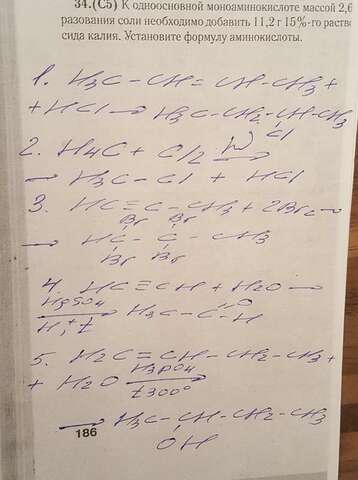 34.(С5) К одноосновной моноаминокислоте массой 2,6
разования соли необходимо добавить 11,2 г 15%-го раство
сида калия. Установите формулу аминокислоты.
1. H3C – CH = CH – CH3 +
+ HCl → H3C – CH2 – CH – CH3
Cl
2. H4C + Cl2 →
→ H3C – Cl + HCl
3. HC ≡ C – CH3 + 2Br2 →
Br Br
→ HC – C – CH3
Br Br
4. HC ≡ CH + H2O →
HgSO4
H,+ t H3C – C – H
O
5. H2C = CH – CH2 – CH3 +
H3PO4
+ H2O →
t 300°
→ H3C – CH – CH2 – CH3
OH
186